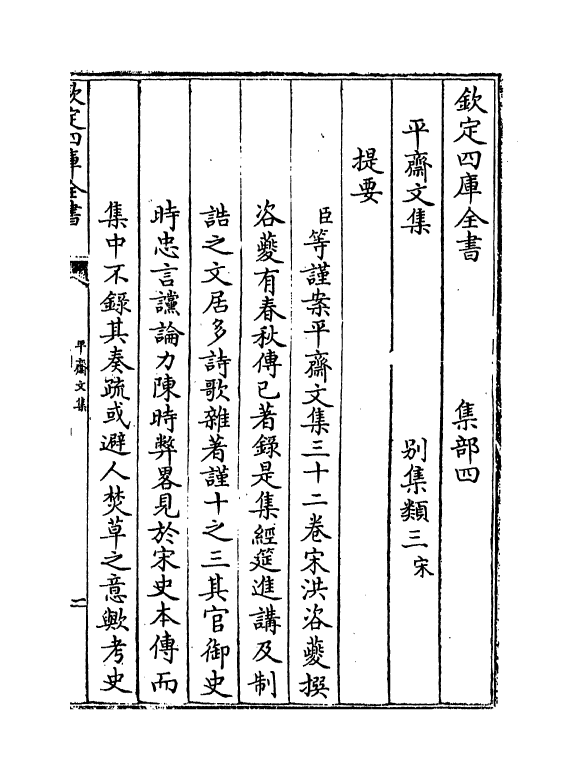 欽定四庫全書　集部四
平齋文集　别集類三宋
提要
臣等謹案平齋文集三十二卷宋洪咨夔撰
咨夔有春秋傳已著錄是集經筵進講及制
誥之文居多詩歌雜著謹十之三其官御史
時忠言讜論力陳時弊畧見於宋史本傳而
集中不錄其奏疏或避人焚草之意歟考史
欽定四庫全書
平齋文集